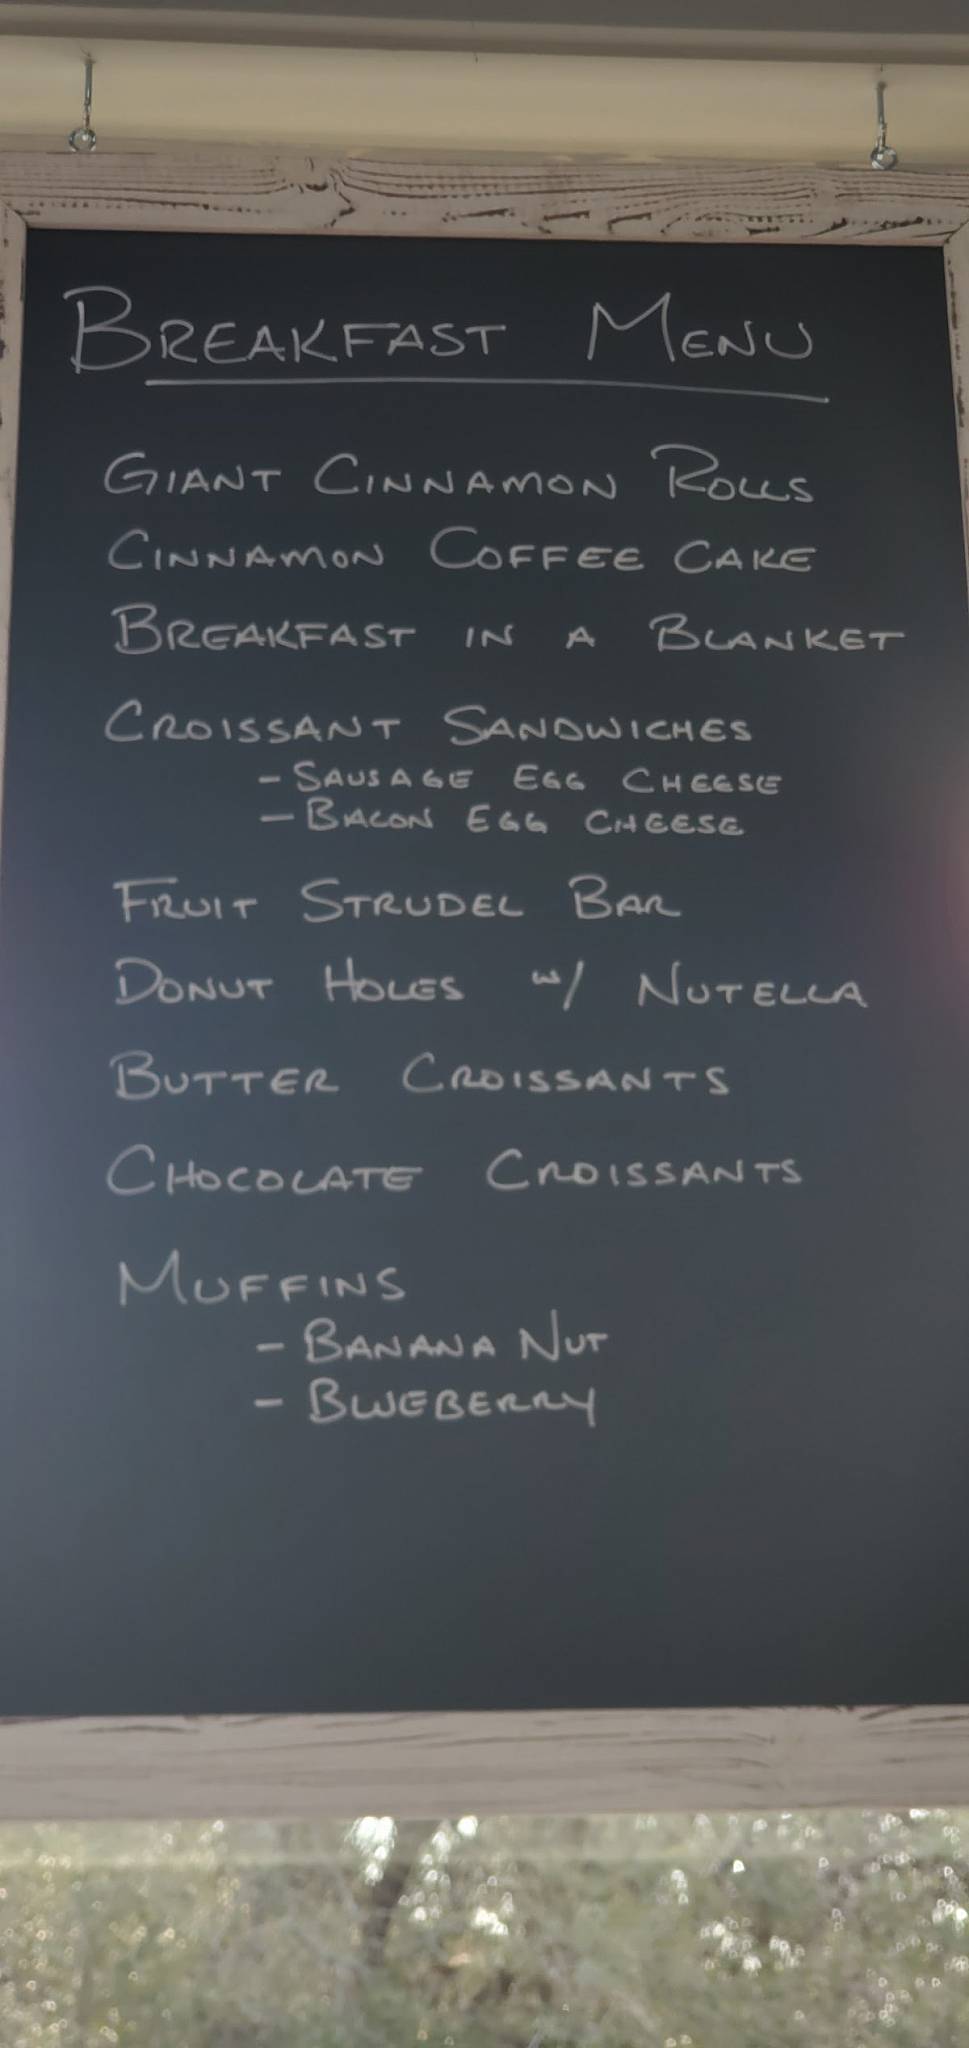 BREAKFAST MENU
GIANT CINNAMON ROLLS
CINNAMON COFFEE CAKE
BREAKFAST IN A BLANKET
CROISSANT SANDWICHES
- SAUSAGE EGG CHEESE
- BACON EGG CHEESE
FRUIT STRUDEL BAR
DONUT HOLES w/ NUTELLA
BUTTER CROISSANTS
CHOCOLATE CROISSANTS
MUFFINS
- BANANA NUT
- BLUEBERRY